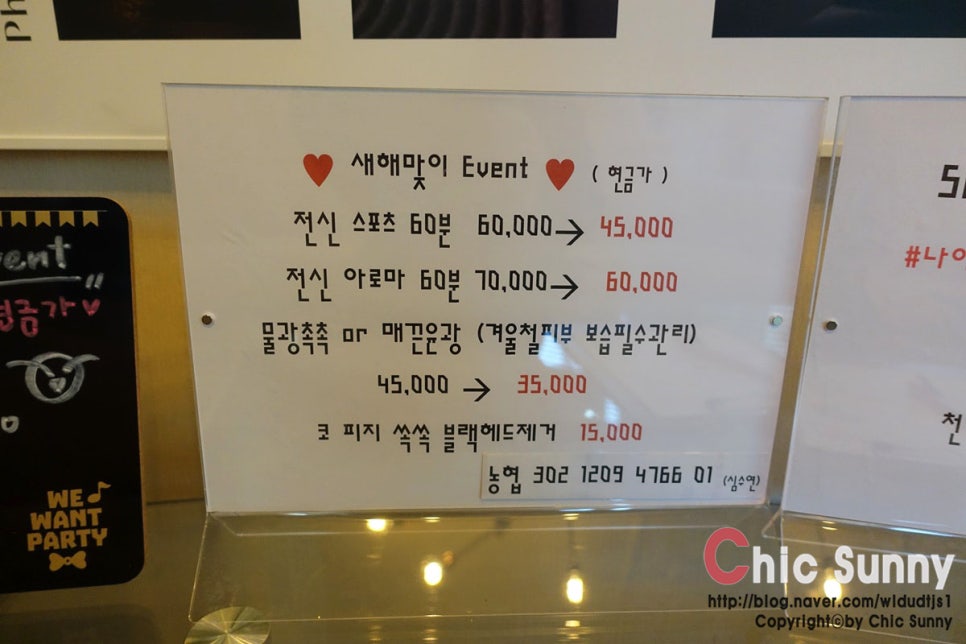 Ph
새해맞이 Event (현금가)
전신 스포츠 60분 60,000→ 45,000
전신 아로마 60분 70,000→ 60,000
물광촉촉 or 매끈윤광 (겨울철피부 보습필수관리)
45,000 → 35,000
코 피지 쏙쏙 블랙헤드제거 15,000
농협 302 1209 4766 01 (심수연)
vent
현금가
WE
WANT
PARTY
#나이
천
Chic Sunny
http://blog.naver.com/wldudtjs1
Copyright©by Chic Sunny